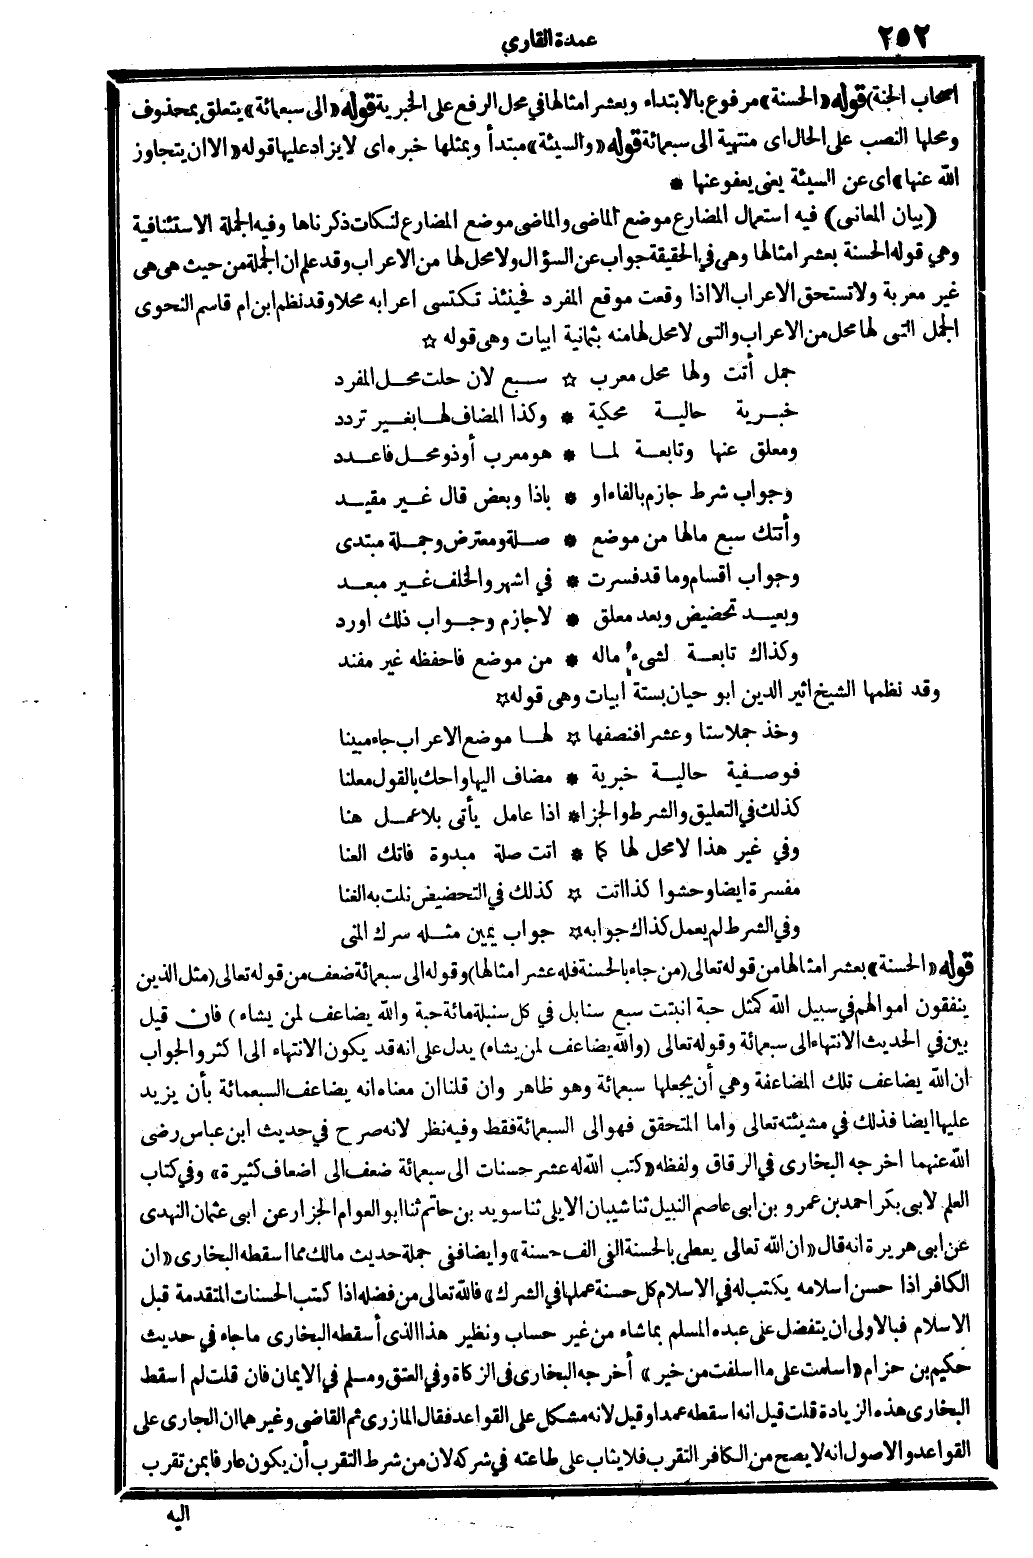 ٢٥٢
عمدة القاري
اصحاب الجنة) قوله «الحسنة» مرفوع بالابتداء وبعشر امثالها في محل الرفع على الخبرية قوله «الى سبعمائة» يتعلق بمحذوف
ومحلها النصب على الحال اى منتهية الى سبعمائة قوله «والسيئة» مبتدأ وبمثلها خبره اى لا يزاد عليها قوله «الا ان يتجاوز
الله عنها» اى عن السيئة يعنى يعفو عنها *
(بيان المعانى) فيه استعمال المضارع موضع الماضى والماضى موضع المضارع لنكات ذكرناها وفيه الجملة الاستئنافية
وهي قوله الحسنة بعشر امثالها وهى في الحقيقة جواب عن السؤال ولا محل لها من الاعراب وقد علم ان الجملة من حيث هى هى
غير معربة ولا تستحق الاعراب الا اذا وقعت موقع المفرد فحينئذ تكتسى اعرابه محلا وقد نظم ابن ام قاسم النحوى
الجمل التى لها محل من الاعراب والتى لا محل لها منه بثمانية ابيات وهى قوله ☆
جمل أتت ولها محل معرب ☆ سبع لان حلت محل المفرد
خبرية حالية محكية * وكذا المضاف لها بغير تردد
ومعلق عنها وتابعة لما * هو معرب أو ذو محل فاعدد
وجواب شرط جازم بالفاء او * باذا وبعض قال غير مقيد
وأتتك سبع مالها من موضع * صلة ومعترض وجملة مبتدى
وجواب اقسام وما قد فسرت * في اشهر والخلف غير مبعد
وبعيد تحضيض وبعد معلق * لا جازم وجواب ذلك اورد
وكذاك تابعة لشىء ماله * من موضع فاحفظه غير مفند
وقد نظمها الشيخ اثير الدين ابو حيان بستة ابيات وهى قوله ☆
وخذ جملا ستا وعشرا فنصفها ☆ لها موضع الاعراب جاء مبينا
فوصفية حالية خبرية * مضاف اليها واحك بالقول معلنا
كذلك في التعليق والشرط والجزا * اذا عامل يأتى بلا عمل هنا
وفي غير هذا لا محل لها كما * اتت صلة مبدوة فاتك العنا
مفسرة ايضا وحشوا كذا اتت ☆ كذلك في التحضيض نلت به الغنا
وفي الشرط لم يعمل كذاك جوابه ☆ جواب يمين مثله سرك المنى
قوله «الحسنة» بعشر امثالها من قوله تعالى (من جاء بالحسنة فله عشر امثالها) وقوله الى سبعمائة ضعف من قوله تعالى (مثل الذين
ينفقون اموالهم في سبيل الله كمثل حبة انبتت سبع سنابل في كل سنبلة مائة حبة والله يضاعف لمن يشاء) فان قيل
بين في الحديث الانتهاء الى سبعمائة وقوله تعالى (والله يضاعف لمن يشاء) يدل على انه قد يكون الانتهاء الى اكثر والجواب
ان الله يضاعف تلك المضاعفة وهي أن يجعلها سبعمائة وهو ظاهر وان قلنا ان معناه انه يضاعف السبعمائة بأن يزيد
عليها ايضا فذلك في مشيئته تعالى واما المتحقق فهو الى السبعمائة فقط وفيه نظر لانه صرح في حديث ابن عباس رضى
الله عنهما اخرجه البخارى في الرقاق ولفظه «كتب الله له عشر حسنات الى سبعمائة ضعف الى اضعاف كثيرة» وفي كتاب
العلم لابى بكر احمد بن عمرو بن ابى عاصم النبيل ثنا شيبان الايلى ثنا سويد بن حاتم ثنا ابو العوام الجزار عن ابى عثمان النهدى
عن ابى هريرة انه قال «ان الله تعالى يعطى بالحسنة الفى الف حسنة» وايضا ففى جملة حديث مالك مما اسقطه البخارى «ان
الكافر اذا حسن اسلامه يكتب له في الاسلام كل حسنة عملها في الشرك» فالله تعالى من فضله اذا كتب الحسنات المتقدمة قبل
الاسلام فبالاولى ان يتفضل على عبده المسلم بما شاء من غير حساب ونظير هذا الذى أسقطه البخارى ما جاء في حديث
حكيم بن حزام «اسلمت على ما اسلفت من خير» أخرجه البخارى فى الزكاة وفي العتق ومسلم في الايمان فان قلت لم اسقط
البخارى هذه الزيادة قلت قيل انه اسقطه عمدا وقيل لانه مشكل على القواعد فقال المازرى ثم القاضى وغيرهما ان الجارى على
القواعد والاصول انه لا يصح من الكافر التقرب فلا يثاب على طاعته في شركه لان من شرط التقرب أن يكون عارفا بمن تقرب
اليه